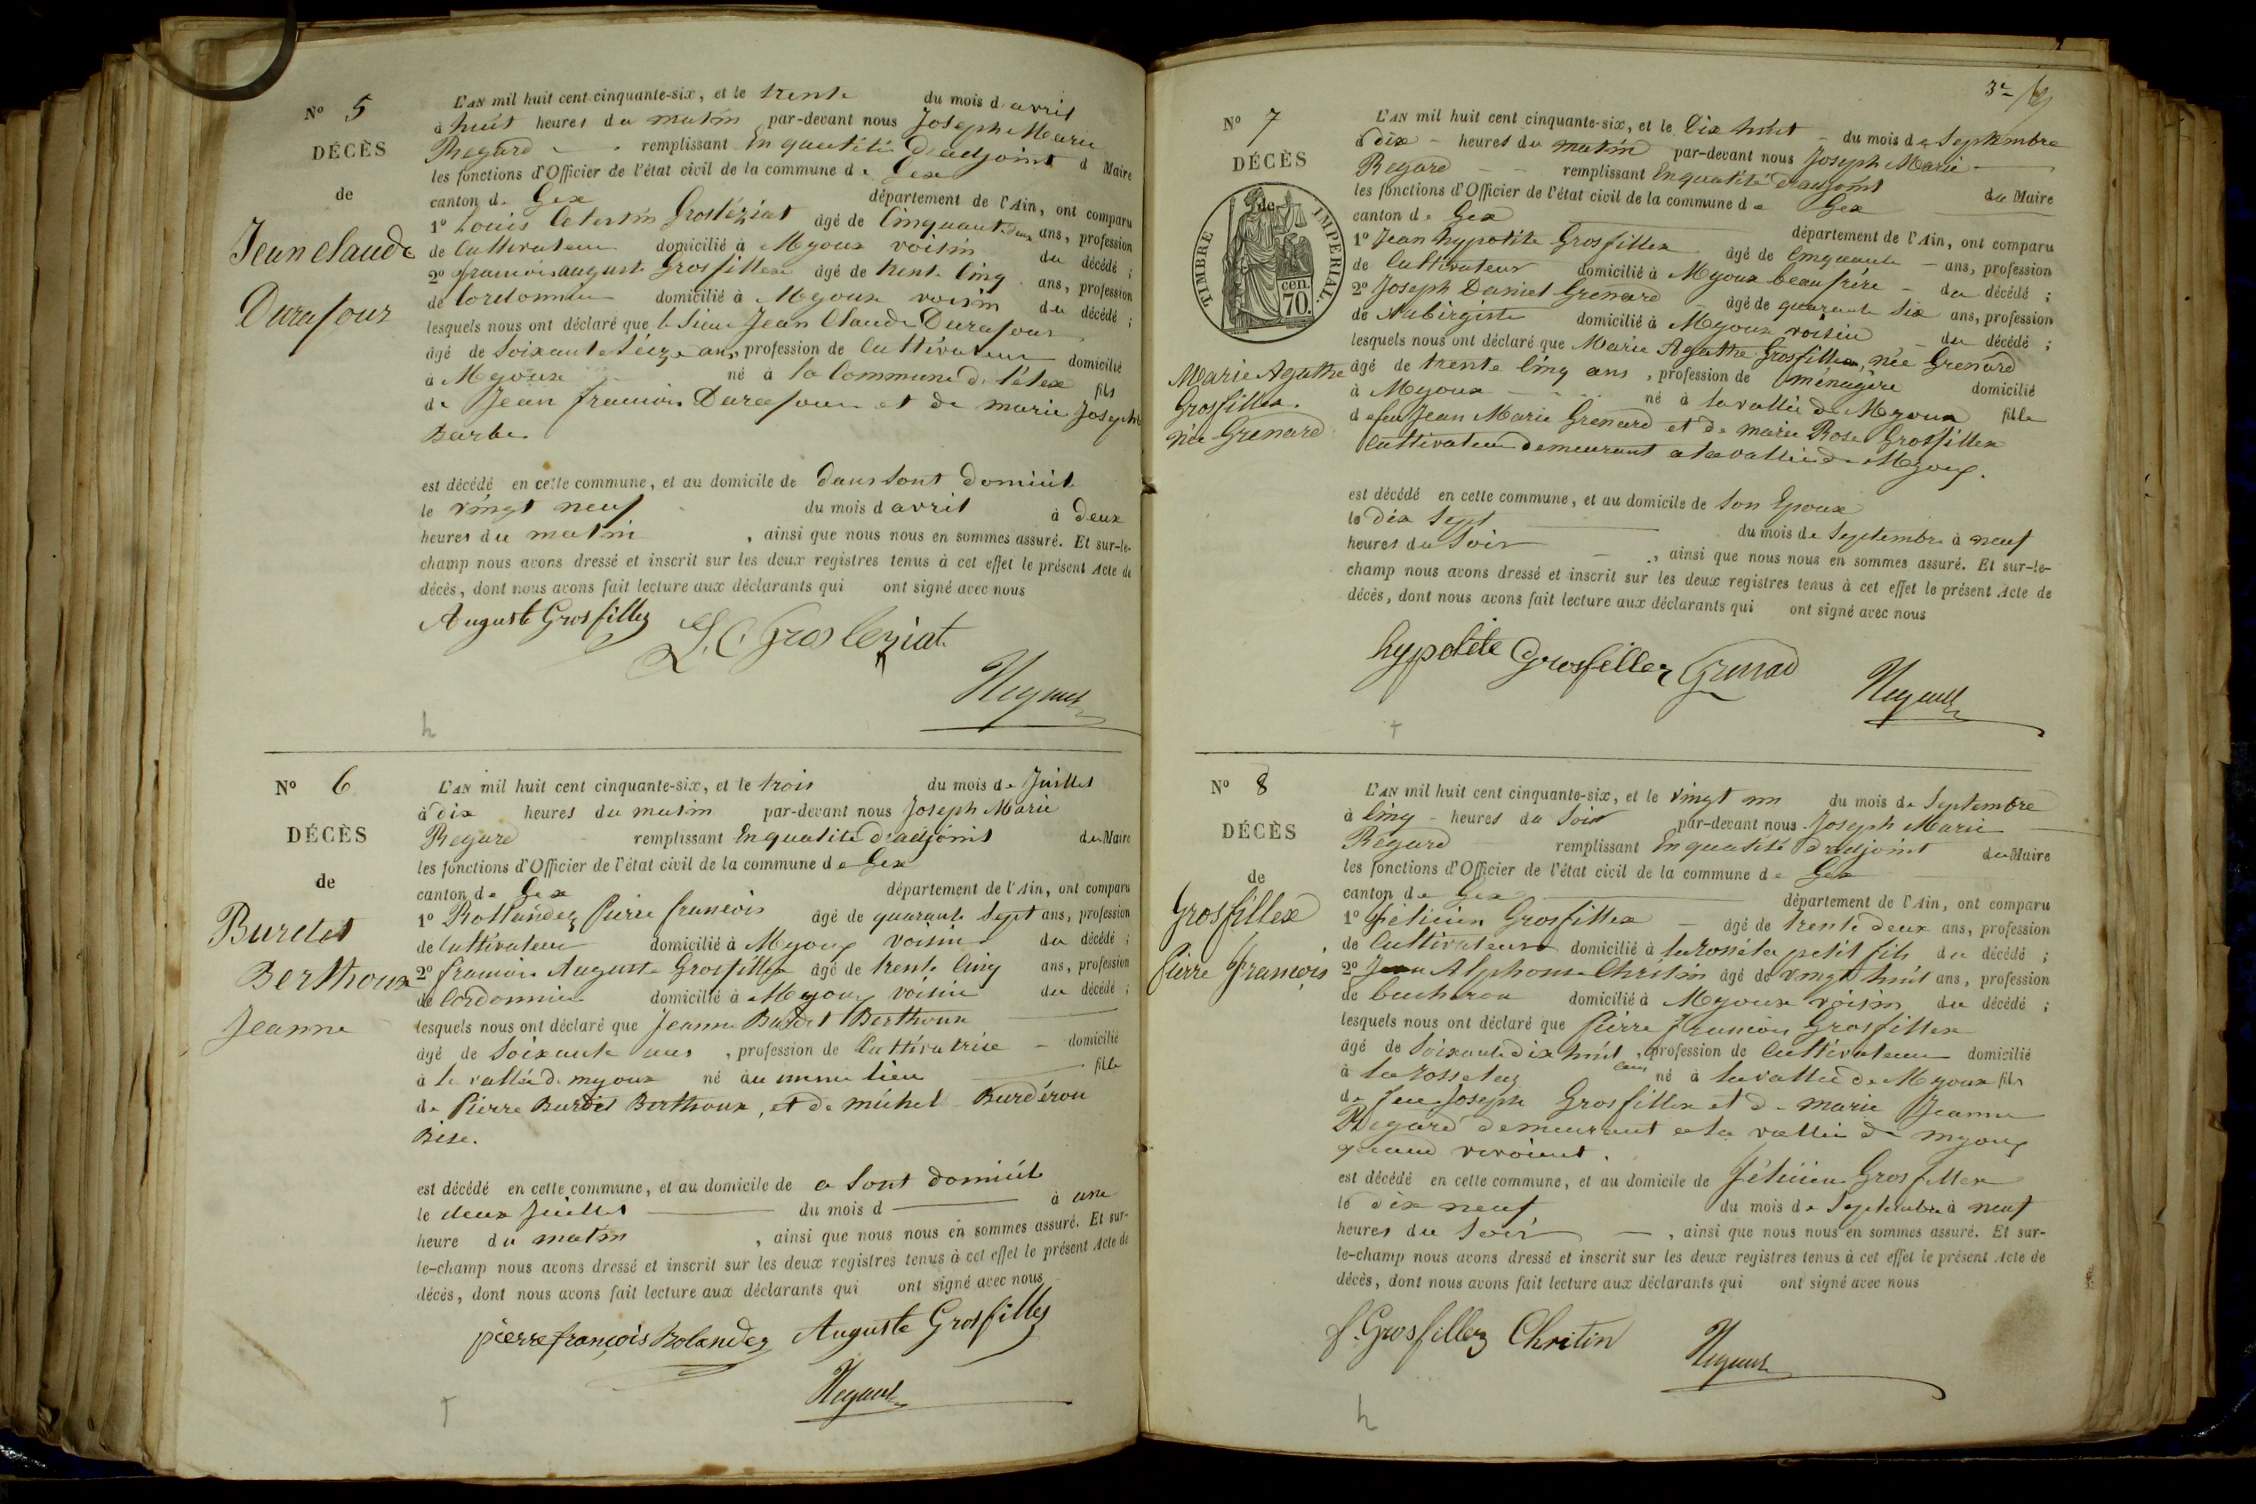 Nº 5
DÉCÈS
de
Jean Claude
Durafour
L'AN mil huit cent cinquante-six, et le trente du mois d avril
à huit heures du matin par-devant nous Joseph Marie
Regard remplissant En quantité D'adjoint d Maire
les fonctions d'Officier de l'état civil de la commune de Gex
canton de Gex département de l'Ain, ont comparu
1º Louis Celestin Grosléziat âgé de Cinquante deux ans, profession
de Cultivateur domicilié à Myoux voisin du décédé ;
2º françois auguste Grosfillex âgé de trente Cinq ans, profession
de Cordonnier domicilié à Myoux voisin du décédé ;
lesquels nous ont déclaré que le Sieur Jean Claude Durafour
âgé de Soixante Seize ans, profession de Cultivateur domicilié
à Myoux né à la Commune de Lélex fils
de Jean françois Durafour et de marie Josephe
Barbe
est décédé en cette commune, et au domicile de Dans Sont Domicile
le vingt neuf du mois d avril à Deux
heures du matin , ainsi que nous nous en sommes assuré. Et sur-le-
champ nous avons dressé et inscrit sur les deux registres tenus à cet effet le présent Acte de
décès, dont nous avons fait lecture aux déclarants qui ont signé avec nous
Auguste Grosfillez
L. C. Grosleziat
Regard
Nº 6
DÉCÈS
de
Burdet
Berthoux
Jeanne
L'AN mil huit cent cinquante-six, et le trois du mois de Juillet
à dix heures du matin par-devant nous Joseph Marie
Regard remplissant En qualité d'adjoint du Maire
les fonctions d'Officier de l'état civil de la commune de Gex
canton de Gex département de l'Ain, ont comparu
1º Rollandez Pierre françois âgé de quarante Sept ans, profession
de Cultivateur domicilié à Myoux voisin du décédé ;
2º françois Auguste Grosfillex âgé de trente Cinq ans, profession
de Cordonnier domicilié à Myoux voisin du décédé ;
lesquels nous ont déclaré que Jeanne Burdet Berthoux
âgé de Soixante ans , profession de Cultivatrice domicilié
à la vallée de myoux né au meme lieu fille
de Pierre Burdet Berthoux, et de michel Burdéron
Bise.
est décédé en cette commune, et au domicile de a Sont Domicile
le deux Juillet du mois d à une
heure du matin , ainsi que nous nous en sommes assuré. Et sur-
le-champ nous avons dressé et inscrit sur les deux registres tenus à cet effet le présent Acte de
décès, dont nous avons fait lecture aux déclarants qui ont signé avec nous
pierre françois Rolandez Auguste Grosfillez
Regard
Nº 7
DÉCÈS
de
TIMBRE IMPERIAL
cen.
70.
Marie Agathe
Grosfillex.
née Grenard
L'AN mil huit cent cinquante-six, et le Dix huit du mois de Septembre
à dix heures du matin par-devant nous Joseph Marie
Regard remplissant En qualité d'adjoint du Maire
les fonctions d'Officier de l'état civil de la commune de Gex
canton de Gex département de l'Ain, ont comparu
1º Jean hypolite Grosfillex âgé de Cinquante ans, profession
de Cultivateur domicilié à Myoux beau frére du décédé ;
2º Joseph Daniel Grenard âgé de quarante Six ans, profession
de Aubirgiste domicilié à Myoux voisin du décédé ;
lesquels nous ont déclaré que Marie Agathe Grosfillex, née Grenard
âgé de trente Cinq ans , profession de ménagère domicilié
à Myoux né à la vallée de Myoux fille
de feu Jean Marie Grenard et de marie Rose Grosfillex
Cultivateur demeurant a la vallée de Myoux.
est décédé en cette commune, et au domicile de Son Epoux
le Dix Sept du mois de Septembre à neuf
heures du Soir , ainsi que nous nous en sommes assuré. Et sur-le-
champ nous avons dressé et inscrit sur les deux registres tenus à cet effet le présent Acte de
décès, dont nous avons fait lecture aux déclarants qui ont signé avec nous
hypolite Grosfillez Grenard
Regard
Nº 8
DÉCÈS
de
Grosfillex
Pierre François
L'AN mil huit cent cinquante-six, et le vingt un du mois de Septembre
à Cinq heures du Soir par-devant nous Joseph Marie
Regard remplissant En qualité d'adjoint du Maire
les fonctions d'Officier de l'état civil de la commune de Gex
canton de Gex département de l'Ain, ont comparu
1º Félicien Grosfillex âgé de trente deux ans, profession
de Cultivateur domicilié à petit fils du décédé ;
2º Alphonse Chritin âgé de vingt huit ans, profession
de bucheron domicilié à Myoux voisin du décédé ;
lesquels nous ont déclaré que Pierre françois Grosfillex
âgé de Soixante dix huit ans, profession de Cultivateur domicilié
à né à la vallée de Myoux fils
de feu Joseph Grosfillex et de marie Jeanne
Regard demeurant a la vallée de myoux
quand vivoient.
est décédé en cette commune, et au domicile de Félicien Grosfillex
le dix neuf du mois de Septembre à neuf
heures du Soir , ainsi que nous nous en sommes assuré. Et sur-
le-champ nous avons dressé et inscrit sur les deux registres tenus à cet effet le présent Acte de
décès, dont nous avons fait lecture aux déclarants qui ont signé avec nous
f. Grosfillez Chritin
Regard